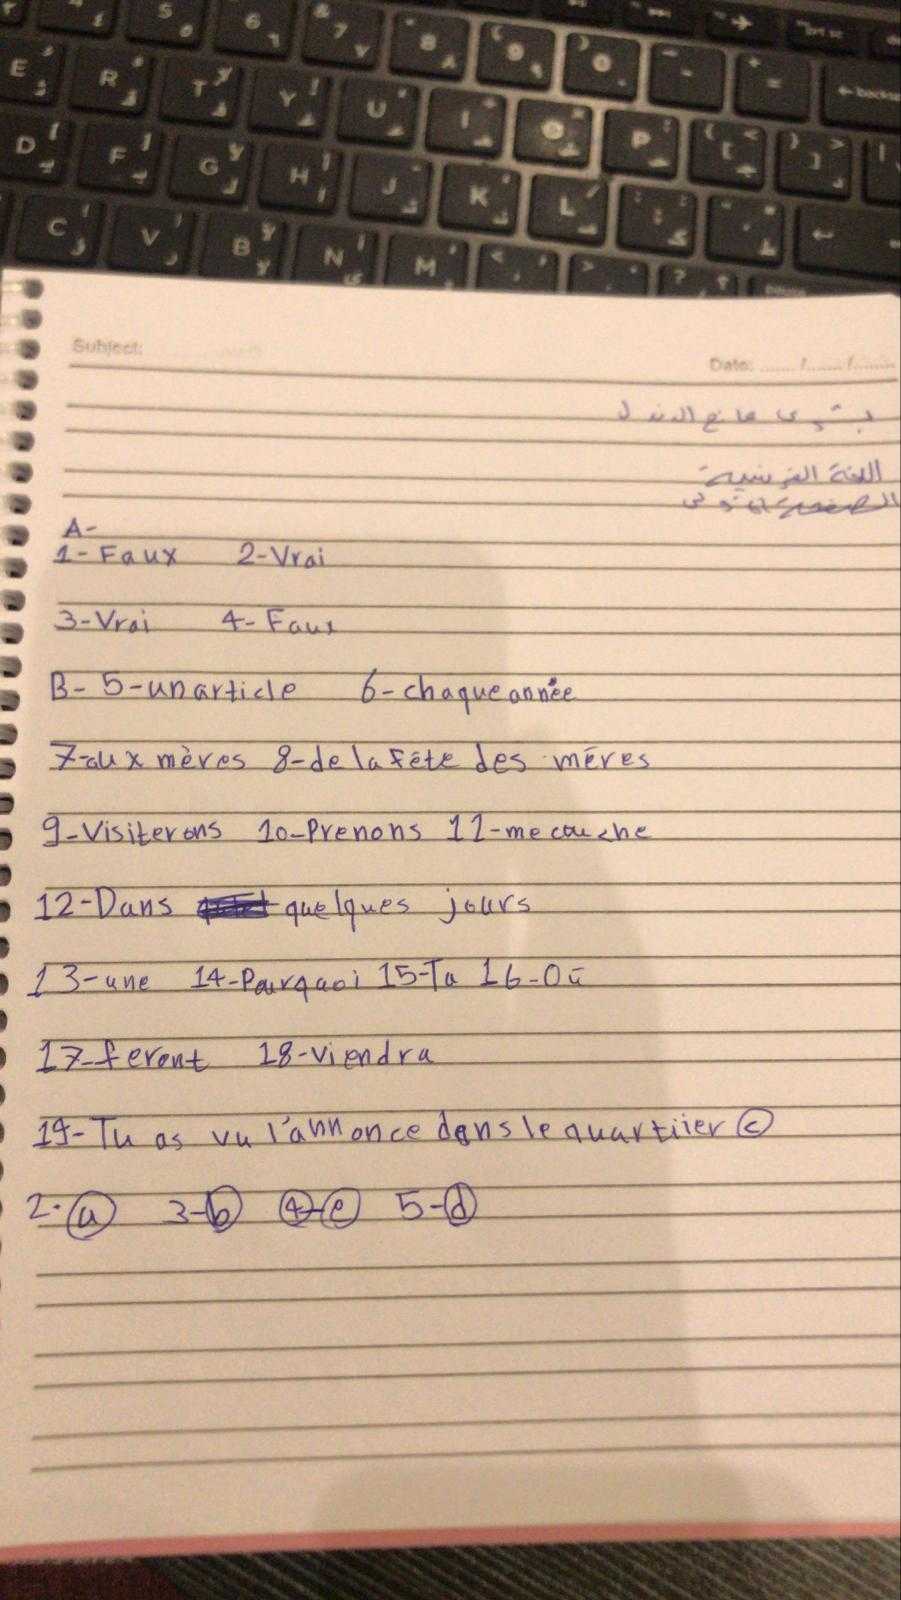 Subject:
Date: ....... /....... /.......
اللغة الفرنسية
A-
1-Faux 2-Vrai
3-Vrai 4-Faux
B- 5-un article 6-chaque année
7-aux mères 8-de la fête des mères
9-Visiterons 10-Prenons 11-me couche
12-Dans quelques jours
13-une 14-Pourquoi 15-Ta 16-Où
17-feront 18-viendra
19-Tu as vu l'annonce dans le quartiier c
2-a 3-b 4-e 5-d